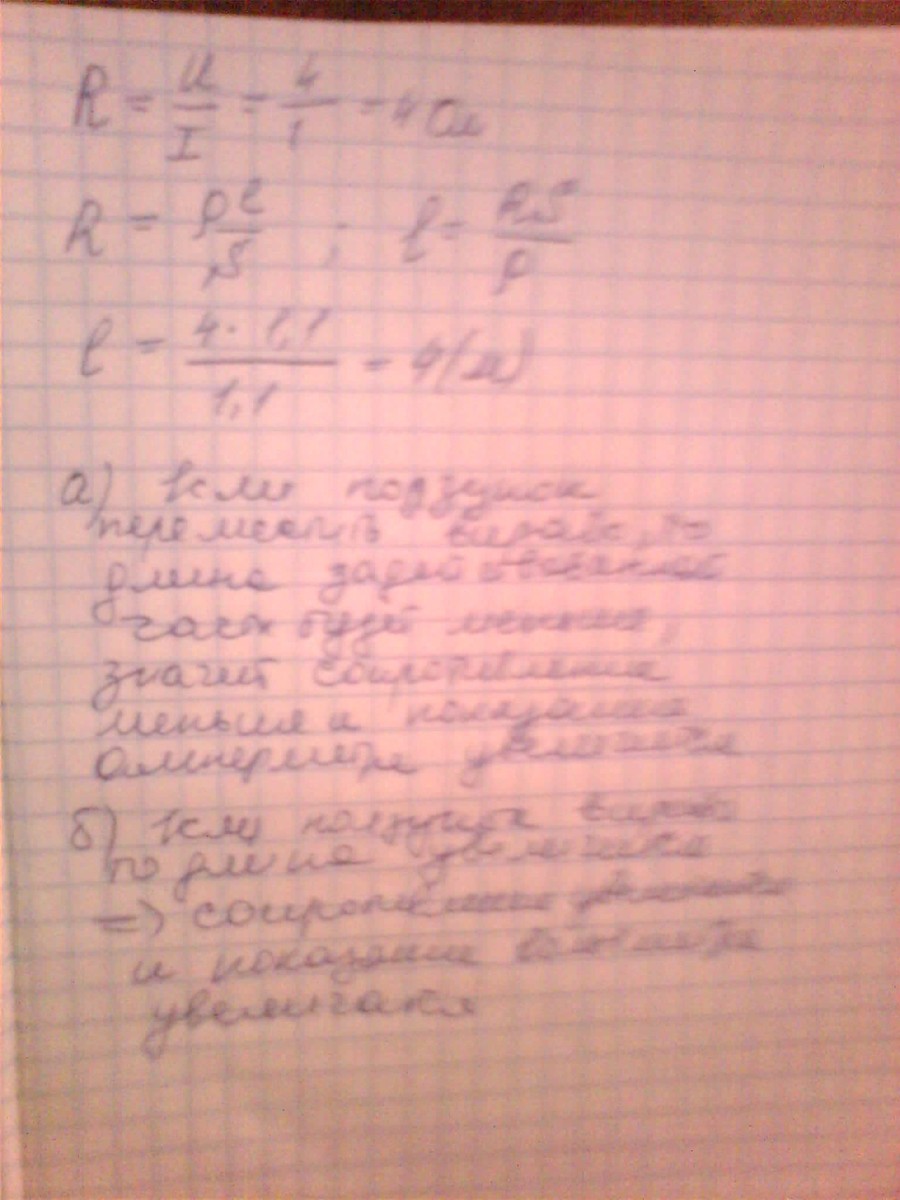 R = U/I = 4/1 = 4 Ом
R = ρl/S ; l = RS/ρ
l = 4 · 1,1 / 1,1 = 4 (м)
а) Если ползунок
переместить, то
длина задействованной
части будет меньше,
значит сопротивление
меньше и показания
амперметра увеличатся
б) Если ползунок
то длина увеличится
=> сопротивление увеличится
и показания вольтметра
увеличатся